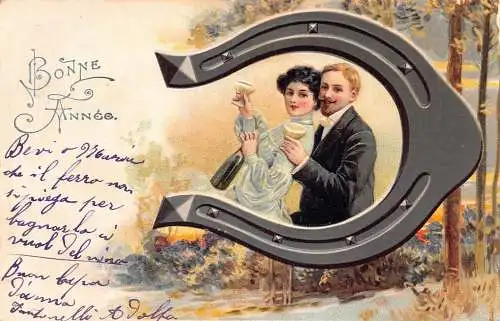 Bonne
Année.
Bevi o Marine
che il ferro non
si piega per
bagnarlo ci
vuol del vino
Buon capo
d'anno
Adolfo